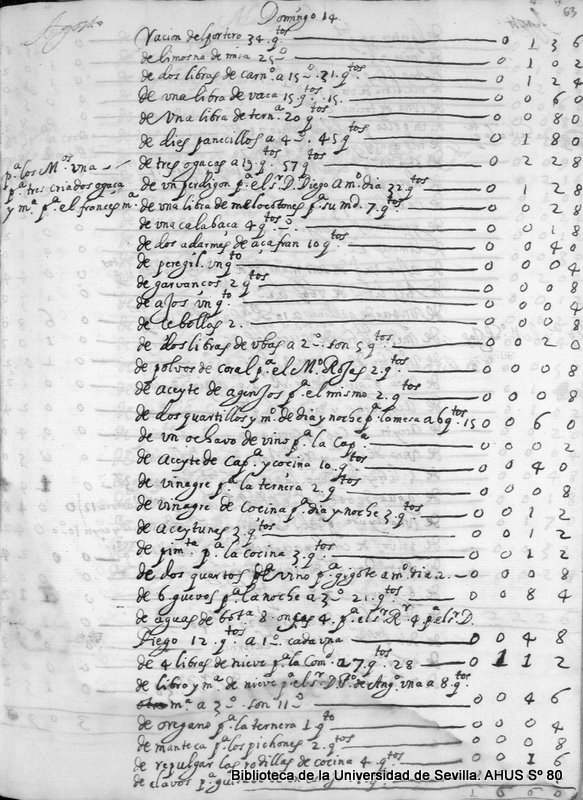 Agosto
Domingo 14.
63
Racion del portero 34. qtos 0 1 3 6
de limosna de misa 25 0 1 0 2
de dos libras de carno. a 15 31. qtos 0 1 2 4
de vna libra de vaca 15 qtos 15. 0 0 6 0
de vna libra de terna. 20 q. 0 0 8 0
de dies panecillos a 4 45 qtos 0 1 8 0
de tres ogacas a 19 q. 57 qtos 0 2 2 8
pa. los Mos. vna
pa. tres criados ogaca
y ma. pa. el frances ma.
de vn perdigon pa. el sr. D. Diego a mo. dia 32 qtos 0 1 2 8
de vna libra de melocotones pa. su md. 7. qtos 0 0 2 8
de vna calabaca 4 qtos 0 0 1 8
de dos adarmes de açafran 10 qtos 0 0 4 0
de peregil. vn qto 0 0 0 4
de garvancos 2 qtos 0 0 0 8
de ajos vn qto. 0 0 0 4
de cebollas 2. 0 0 0 8
de dos libras de vbas a 2 son 5 qtos 0 0 2 0
de polvos de coral pa. el Mo. Rojas 2. qtos 0 0 0 8
de aceyte de agenjos pa. el mismo 2. qtos 0 0 0 8
de dos quartillos y mo. de dia y noche pa. la mesa a 6 qtos. 15 0 0 6 0
de vn ochavo de vino pa. la Capa. 0 0 0 2
de aceyte de Capa. y cocina 10. qtos 0 0 4 0
de vinagre pa. la ternera 2. qtos 0 0 0 8
de vinagre de cocina pa. dia y noche 3. qtos 0 0 1 2
de aceytunas 3. qtos 0 0 1 2
de pimta. pa. la cocina 3. qtos 0 0 1 2
de dos quartos de vino pa. gigote a mo. dia 2. 0 0 0 8
de 6. guevos pa. la noche a 3 21. qtos 0 0 8 4
de aguas de bota. 8 onças 4. pa. el sr. Rr. 4 pa. el sr. D.
Diego 12. qtos a 1 cada vna 0 0 4 8
de 4 libras de nieve pa. la Como. a 7. qtos 28 0 1 1 2
de libra y ma. de nieve pa. el sr. D. Po. de Ango. vna a 8. qtos
ma. a 3 son 11 0 0 4 6
de oregano pa. la ternera 1 qto 0 0 0 4
de manteca pa. los pichones 2. qtos 0 0 0 8
de repulgar las rodillas de cocina 4 qtos 0 0 1 6
de clavos pa.
Biblioteca de la Universidad de Sevilla. AHUS Sº 80